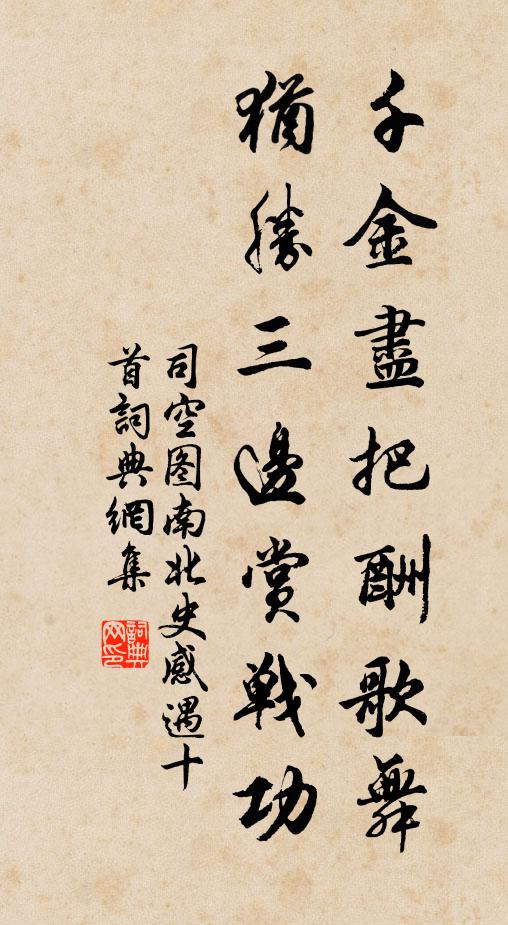 千金盡把酬歌舞
猶勝三邊賞戰功
司空图南北史感遇十
首詞典網集
詞典网印